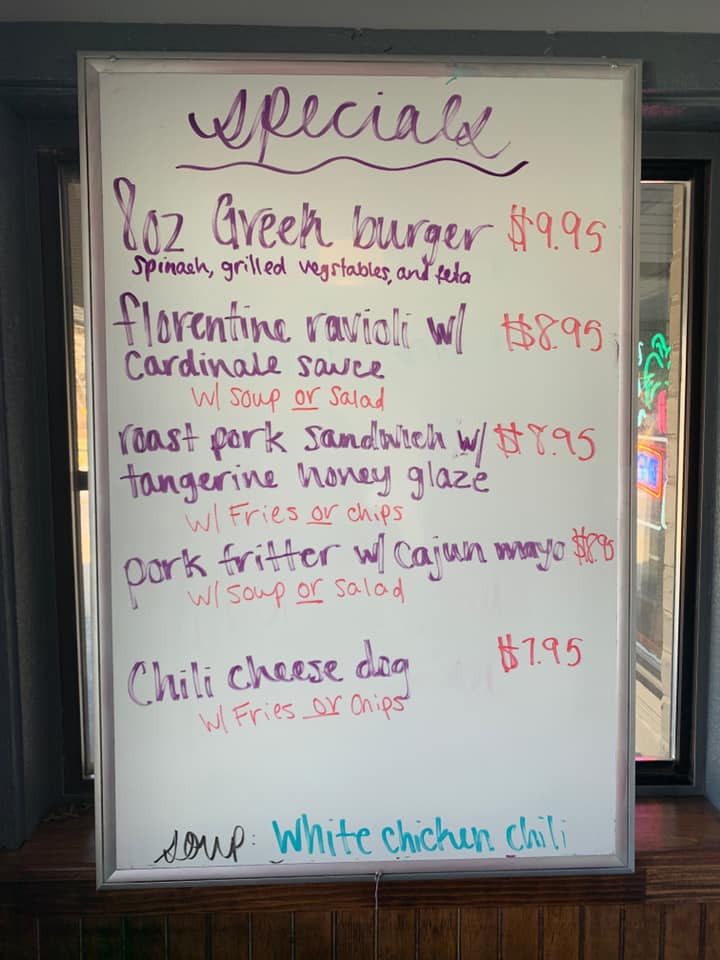 specials
8oz Greek burger $9.95
spinach, grilled vegstables, and feta
florentine ravioli w/ $8.95
Cardinale sauce
w/ soup or salad
roast pork sandwich w/ $8.95
tangerine honey glaze
w/ Fries or chips
pork fritter w/ Cajun mayo $8.95
w/ soup or salad
Chili cheese dog $7.95
w/ Fries or Chips
soup: White chicken chili